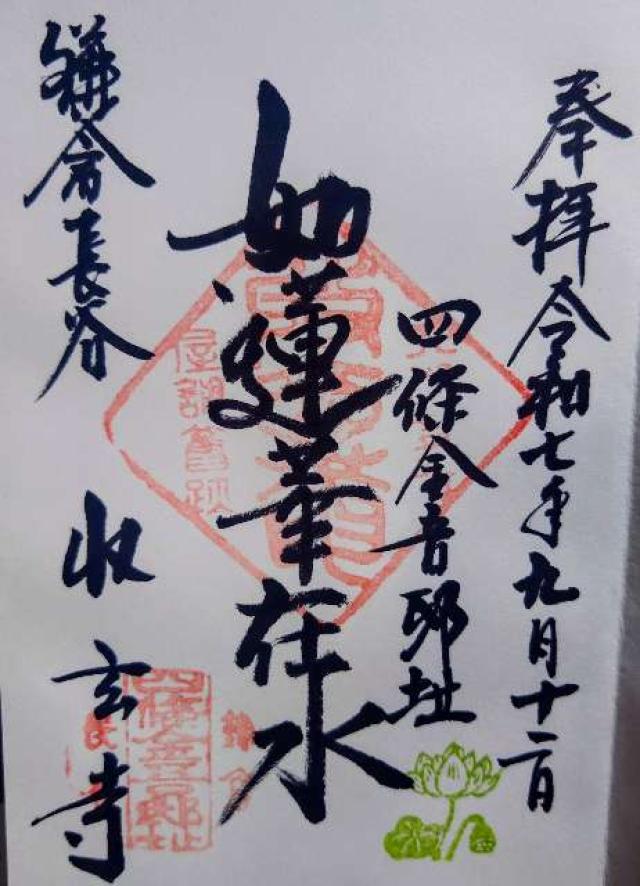 奉拝令和七年九月十二日
四條金吾邸址
如蓮華在水
鎌倉長谷
収玄寺
屋諏舊跡